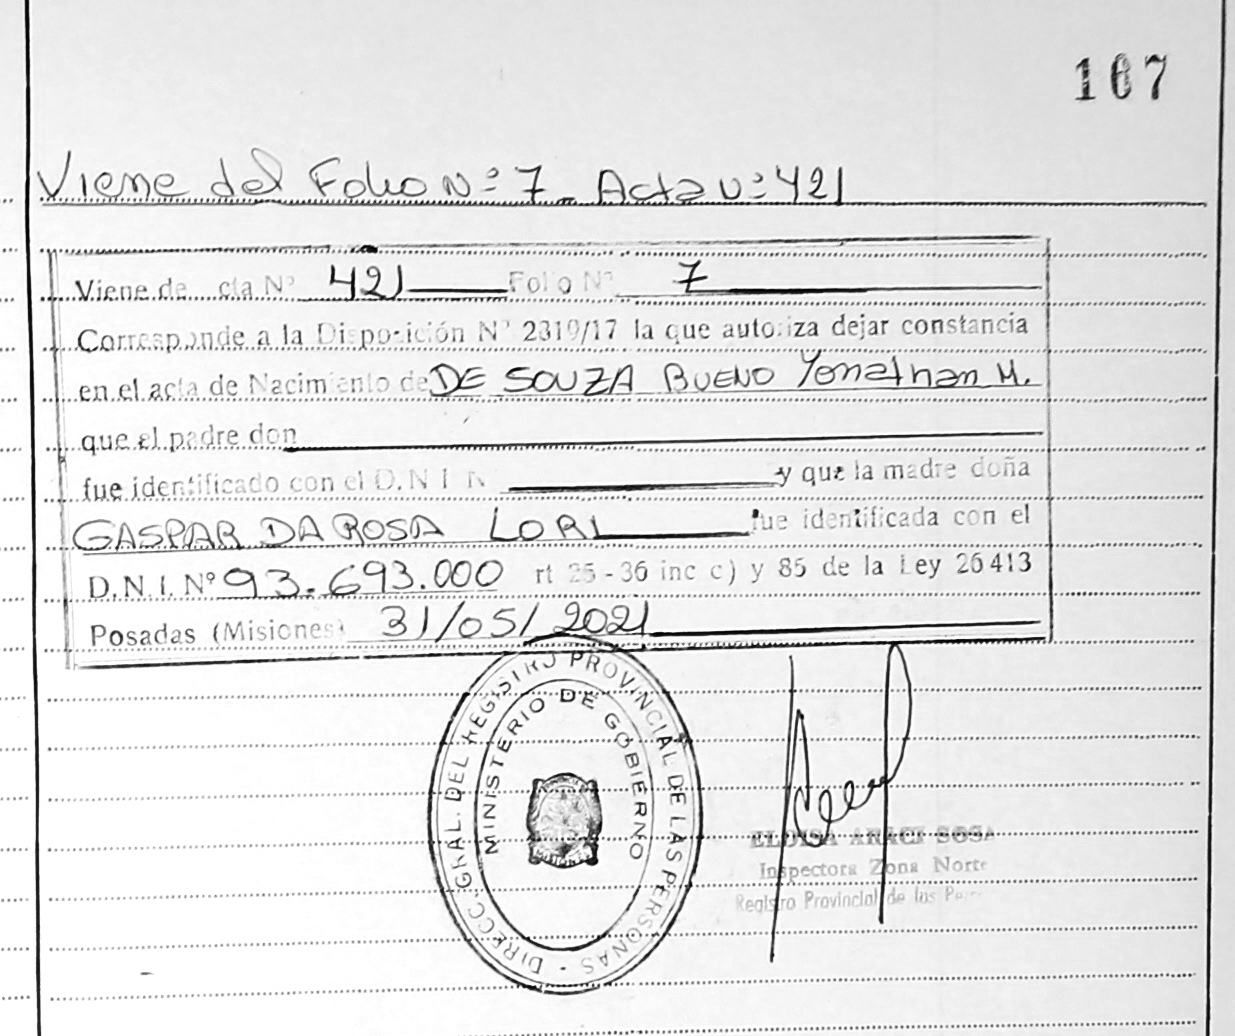 167
Viene del Folio Nº 7 - Acta Nº 421
Viene de cta Nº 421 Folio Nº 7
Corresponde a la Disposición Nº 2319/17 la que autoriza dejar constancia
en el acta de Nacimiento de DE SOUZA BUENO Yonathan M.
que el padre don
fue identificado con el D.N I N y que la madre doña
GASPAR DA ROSA LORI fue identificada con el
D.N.I. Nº 93.693.000 rt 25-36 inc c) y 85 de la Ley 26413
Posadas (Misiones) 31/05/2021
DIRECC. GRAL. DEL REGISTRO PROVINCIAL DE LAS PERSONAS -
MINISTERIO DE GOBIERNO
MISIONES
ELOISA ARACI SOSA
Inspectora Zona Norte
Registro Provincial de las